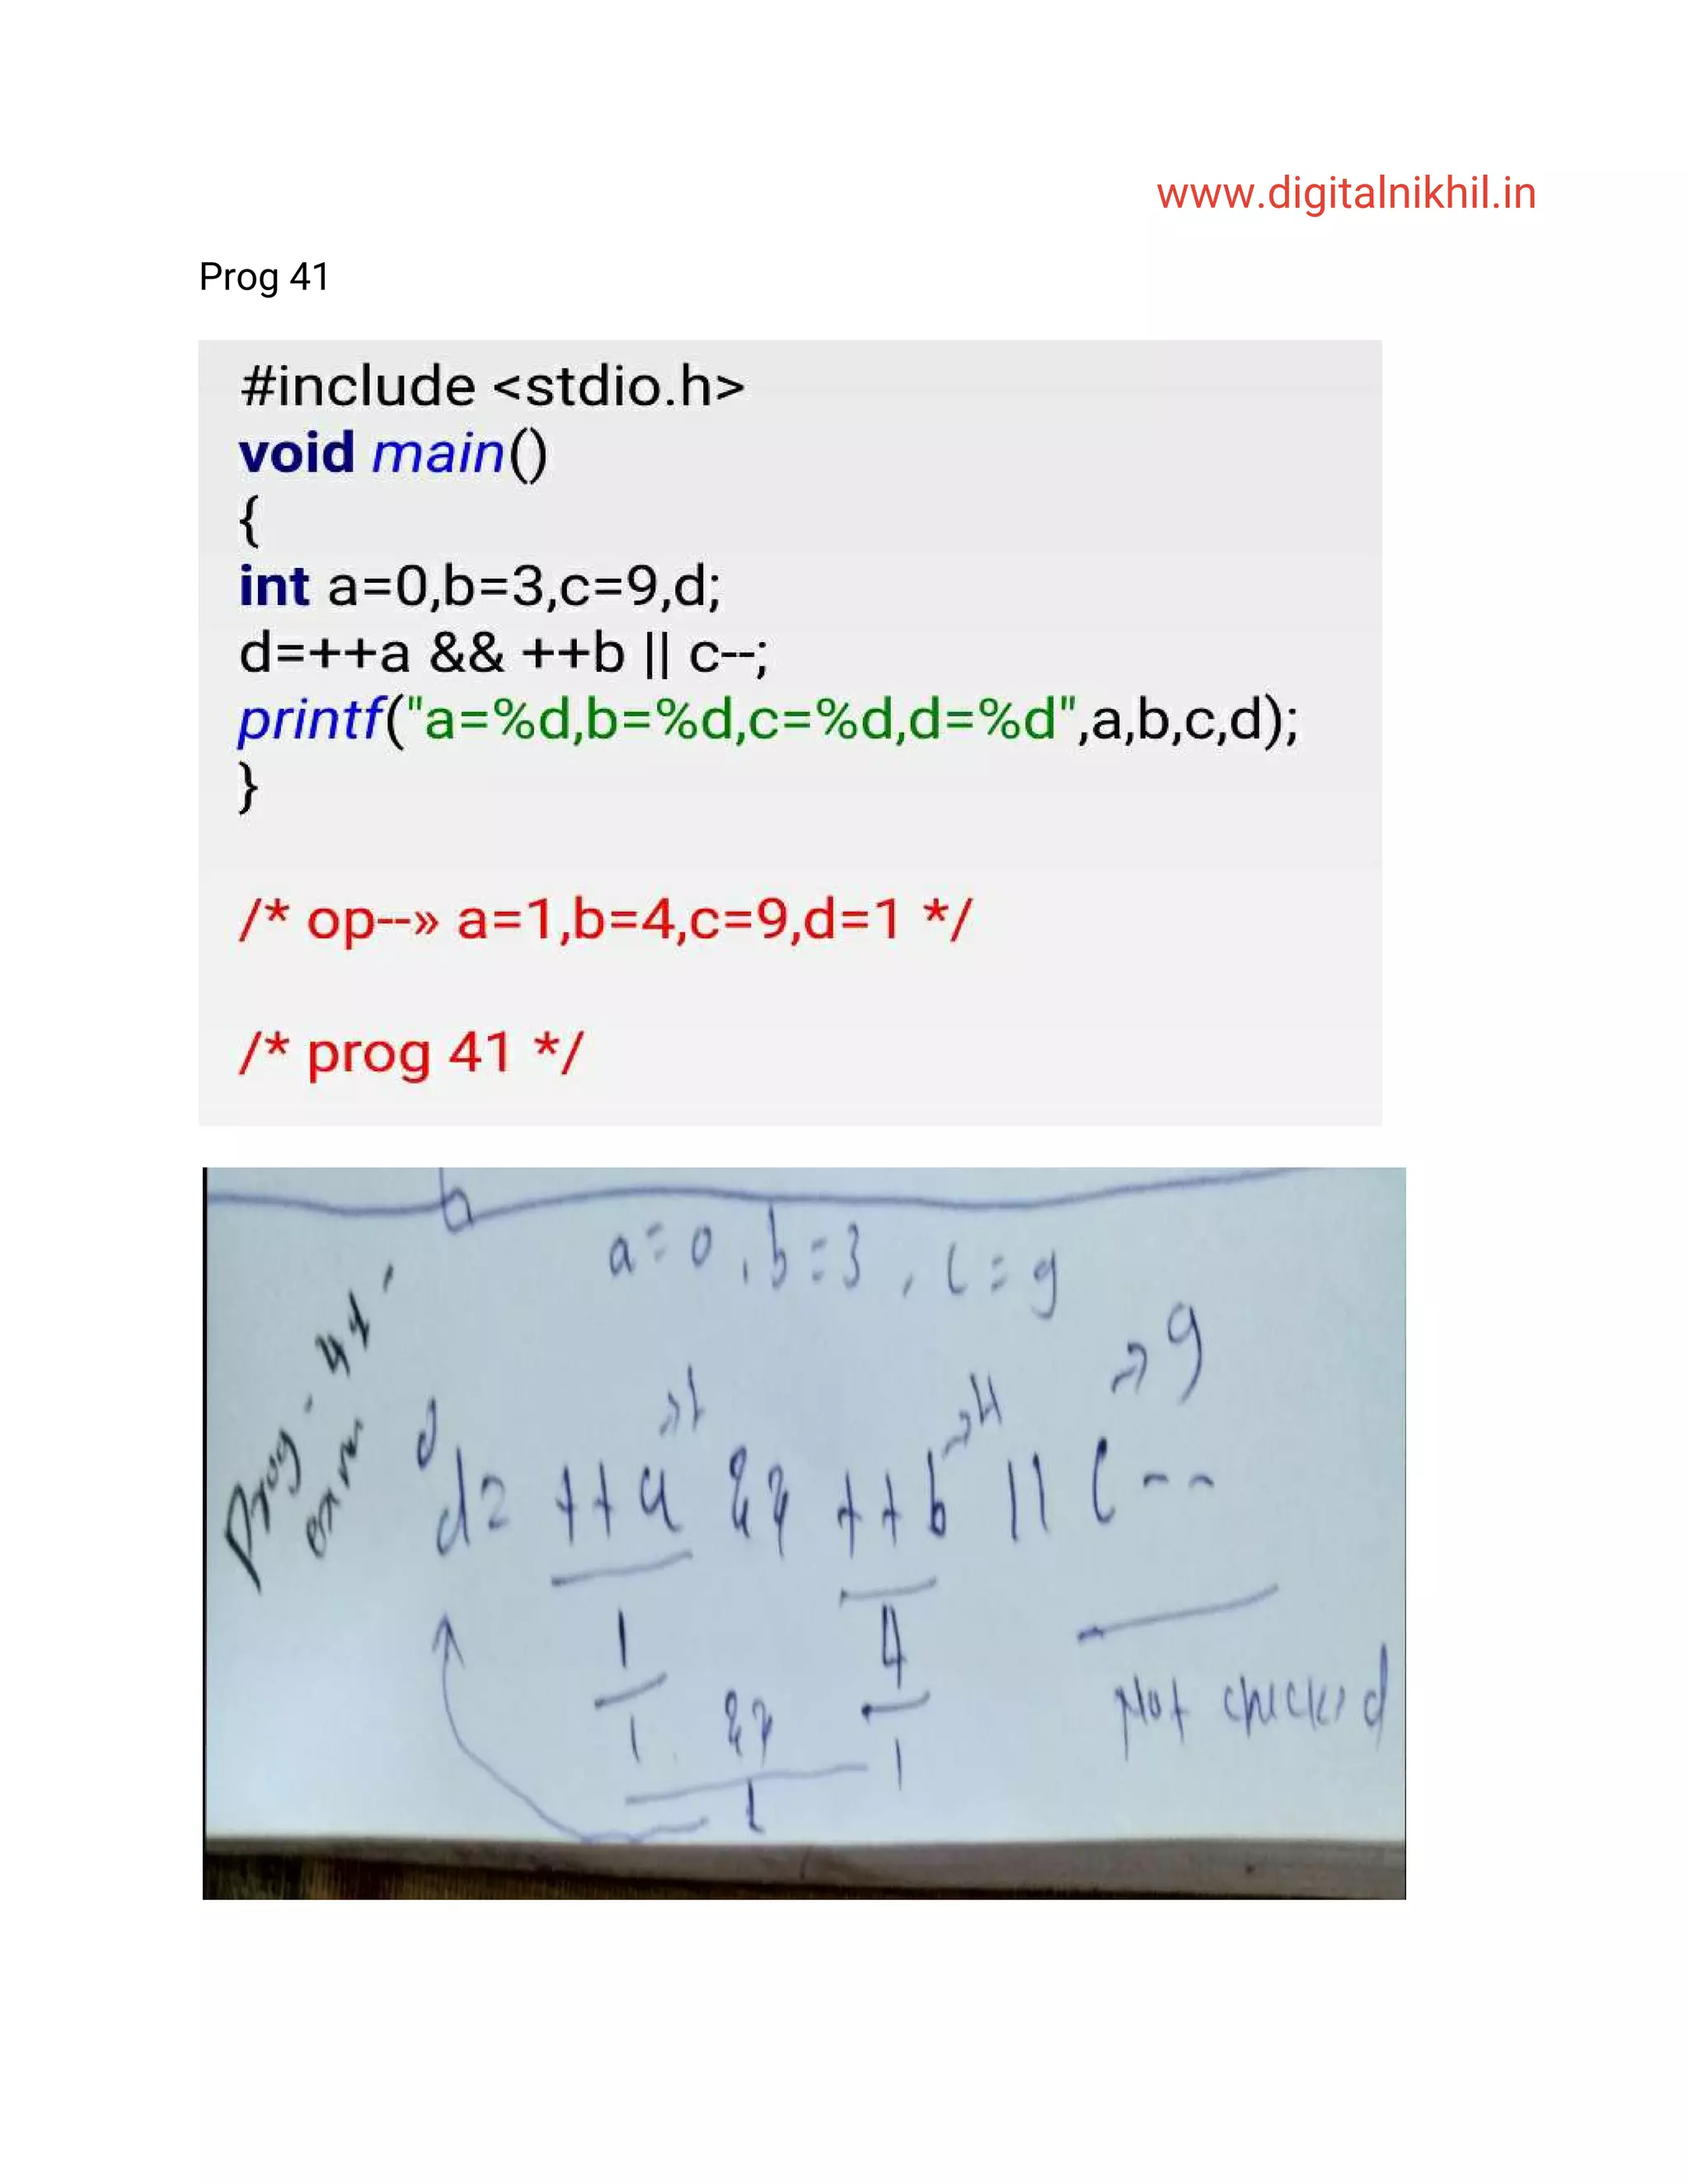 www.digitalnikhil.in
Prog 41
#include <stdio.h>
void main()
{
int a=0,b=3,c=9,d;
d=++a && ++b || c--;
printf("a=%d,b=%d,c=%d,d=%d",a,b,c,d);
}
/* op--» a=1,b=4,c=9,d=1 */
/* prog 41 */
a=0, b=3, c=9
Prog - 41
→1 →4 →9
d= ++a && ++b || c--
1 4
Not checked
1 && 1
1